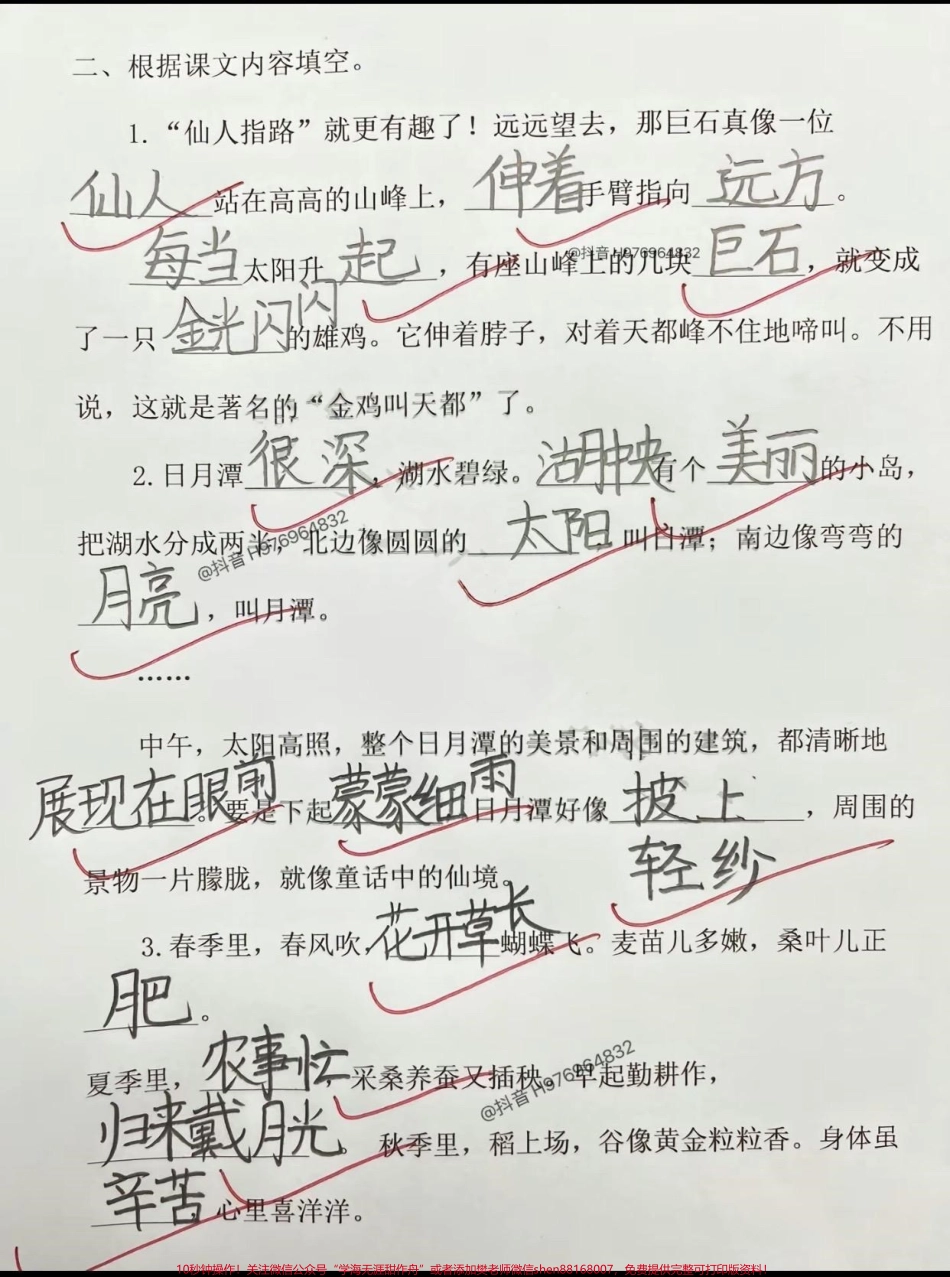 二、根据课文内容填空。
1.“仙人指路”就更有趣了！远远望去，那巨石真像一位
仙人站在高高的山峰上，伸着手臂指向远方。
每当太阳升起，有座山峰上的几块巨石，就变成
@抖音H976964832
了一只金光闪闪的雄鸡。它伸着脖子，对着天都峰不住地啼叫。不用
说，这就是著名的“金鸡叫天都”了。
2.日月潭很深，湖水碧绿。湖中央有个美丽的小岛，
把湖水分成两半，北边像圆圆的太阳，叫日潭；南边像弯弯的
@抖音H976964832
月亮，叫月潭。
……
中午，太阳高照，整个日月潭的美景和周围的建筑，都清晰地
展现在眼前。要是下起蒙蒙细雨，日月潭好像披上轻纱，周围的
景物一片朦胧，就像童话中的仙境。
3.春季里，春风吹，花开草长蝴蝶飞。麦苗儿多嫩，桑叶儿正
肥。
夏季里，农事忙，采桑养蚕又插秧。早起勤耕作，
@抖音H976964832
归来戴月光。秋季里，稻上场，谷像黄金粒粒香。身体虽
辛苦，心里喜洋洋。
10秒钟操作！关注微信公众号“学海无涯甜作舟”或者添加樊老师微信shen88168007，免费提供完整可打印版资料！